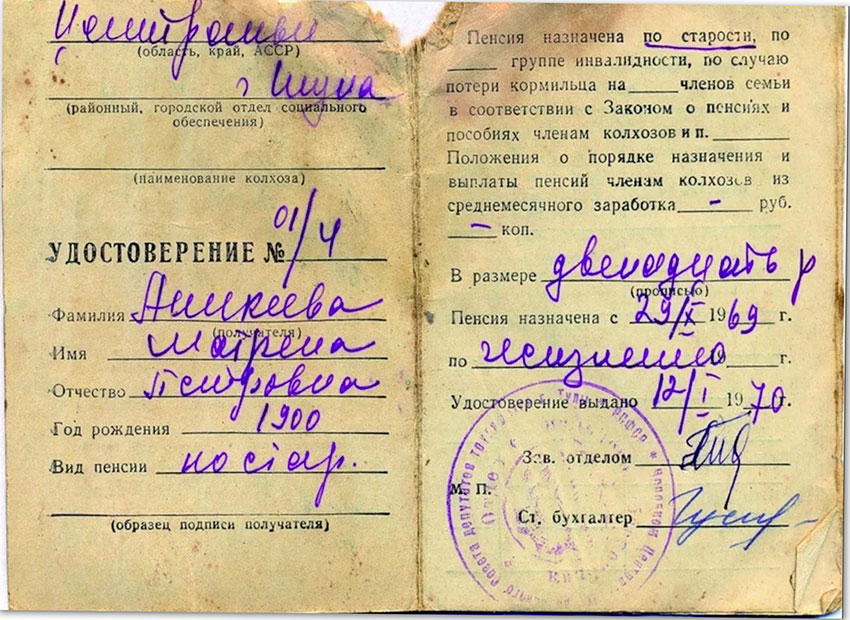 (область, край, АССР)
г
(районный, городской отдел социального
обеспечения)
(наименование колхоза)
УДОСТОВЕРЕНИЕ № 01/4
Фамилия Аникеева
(получателя)
Имя Матрена
Отчество Петровна
Год рождения 1900
Вид пенсии по стар.
(образец подписи получателя)
Пенсия назначена по старости, по
группе инвалидности, по случаю
потери кормильца на членов семьи
в соответствии с Законом о пенсиях и
пособиях членам колхозов и п.
Положения о порядке назначения и
выплаты пенсий членам колхозов из
среднемесячного заработка – руб.
– коп.
В размере двенадцать р
(прописью)
Пенсия назначена с 29/X 1969 г.
по жизненно г.
Удостоверение выдано 12/I 1970 г.
Зав. отделом
М. П.
Ст. бухгалтер